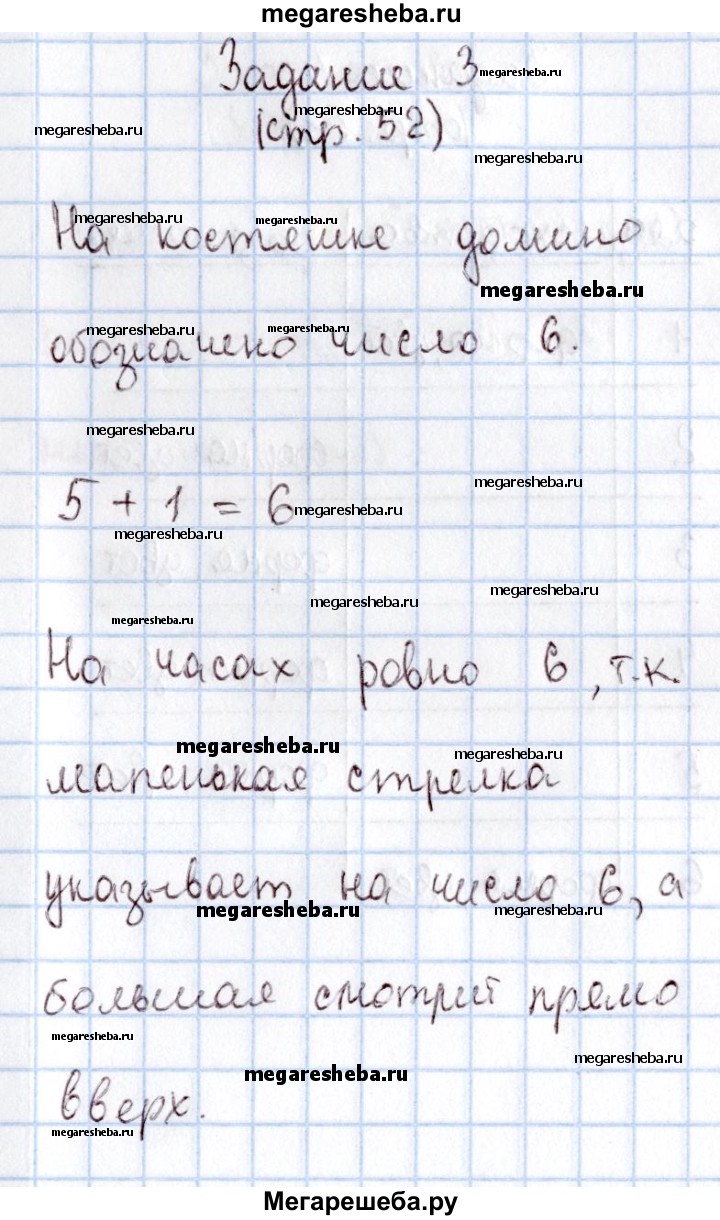 megaresheba.ru
Задание 3
megaresheba.ru
megaresheba.ru
megaresheba.ru
(стр. 52)
megaresheba.ru
megaresheba.ru
megaresheba.ru
На костяшке домино
megaresheba.ru
megaresheba.ru
megaresheba.ru
обозначено число 6.
megaresheba.ru
megaresheba.ru
5 + 1 = 6
megaresheba.ru
megaresheba.ru
megaresheba.ru
megaresheba.ru
megaresheba.ru
На часах ровно 6, т.к.
megaresheba.ru
megaresheba.ru
маленькая стрелка
указывает на число 6, а
megaresheba.ru
megaresheba.ru
большая смотрит прямо
megaresheba.ru
megaresheba.ru
megaresheba.ru
вверх.
megaresheba.ru
Мегарешеба.ру